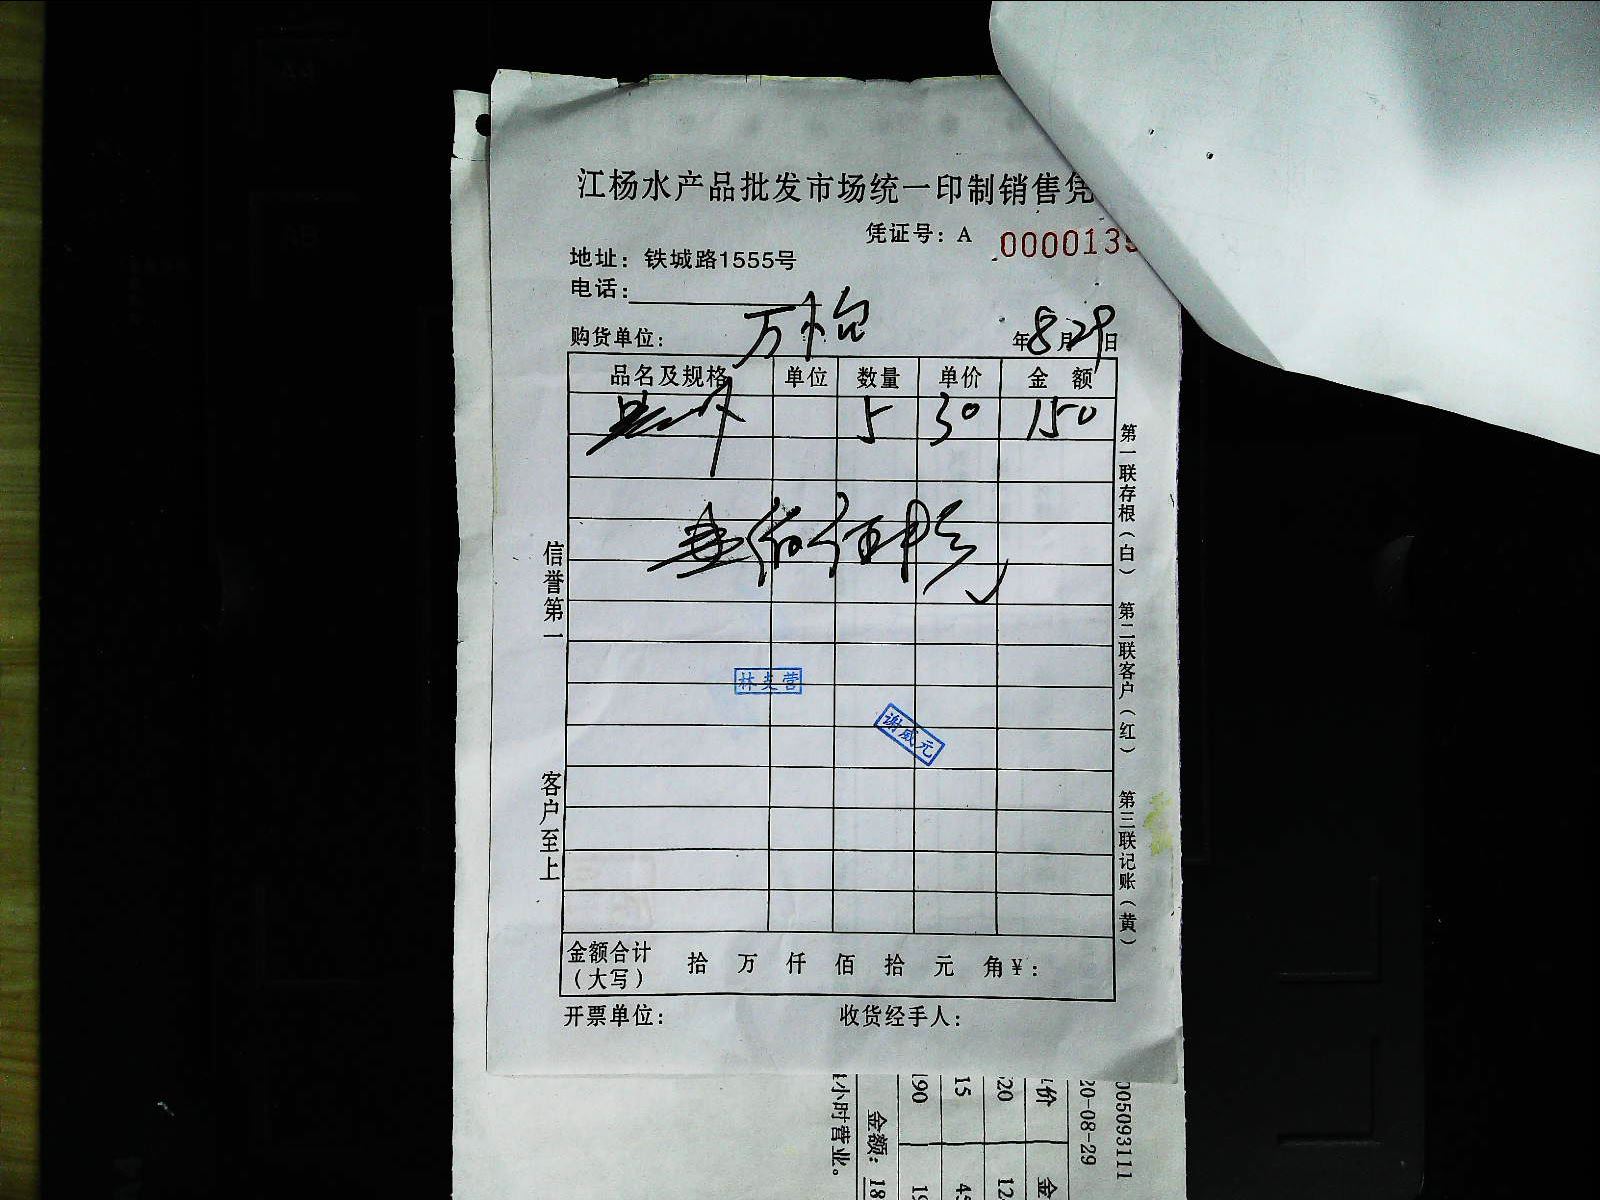 江杨水产品批发市场统一印制销售凭
凭证号：A 0000139
地址：铁城路1555号
电话：
购货单位： 万怡 年8月29日
品名及规格 单位 数量 单价 金 额
5 30 150
壹佰伍拾元
林 营
谢威元
金额合计（大写） 拾 万 仟 佰 拾 元 角 ￥：
开票单位： 收货经手人：
信誉第一
客户至上
第一联存根（白） 第二联客户（红） 第三联记账（黄）
005093111
20-08-29
价 金
20 12
15 45
190 19
金额： 18
小时营业。